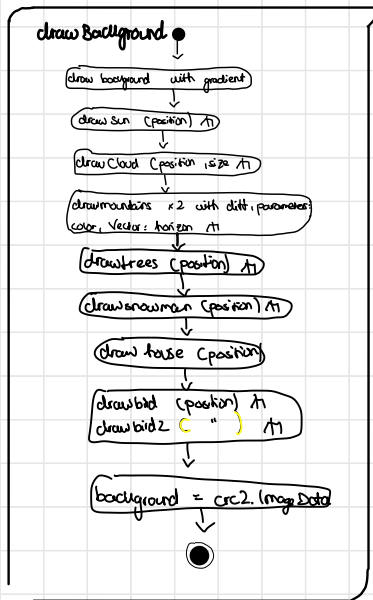 drawBackground
draw background with gradient
draw sun (position)
drawCloud (position, size
drawmountains x2 with diff. parameter:
color, Vector: horizon
drawtrees (position)
drawsnowman (position)
draw house (position)
drawbird (position)
drawbird2 ( " )
background = crc2.ImageData